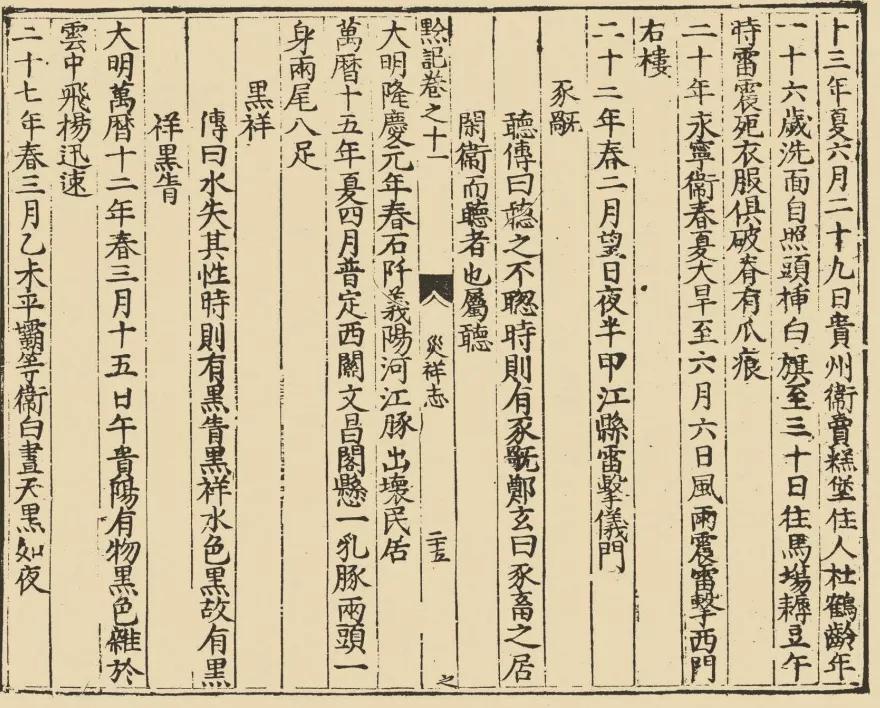 十三年夏六月二十九日貴州衞賣糕堡住人杜鶴齡年
一十六歲洗面自照頭揷白旗至三十日往馬塲耨豆午
時雷震死衣服俱破脊有爪痕
二十年永寧衞春夏大旱至六月六日風雨震雷擊西門
右樓
二十二年春二月望日夜半印江縣雷擊儀門
豕旤
聽傳曰聽之不聰時則有豕旤鄭玄曰豕畜之居
閑衞而聽者也屬聽
黔記卷之十一
災祥志
二十五
大明隆慶元年春石阡義陽河江豚出壞民居
萬曆十五年夏四月普定西關文昌閣懸一乳豚兩頭一
身兩尾八足
黑祥
傳曰水失其性時則有黑眚黑祥水色黑故有黑
祥黑眚
大明萬曆十二年春三月十五日午貴陽有物黑色雜於
雲中飛揚迅速
二十七年春三月乙未平壩等衞白晝天黑如夜